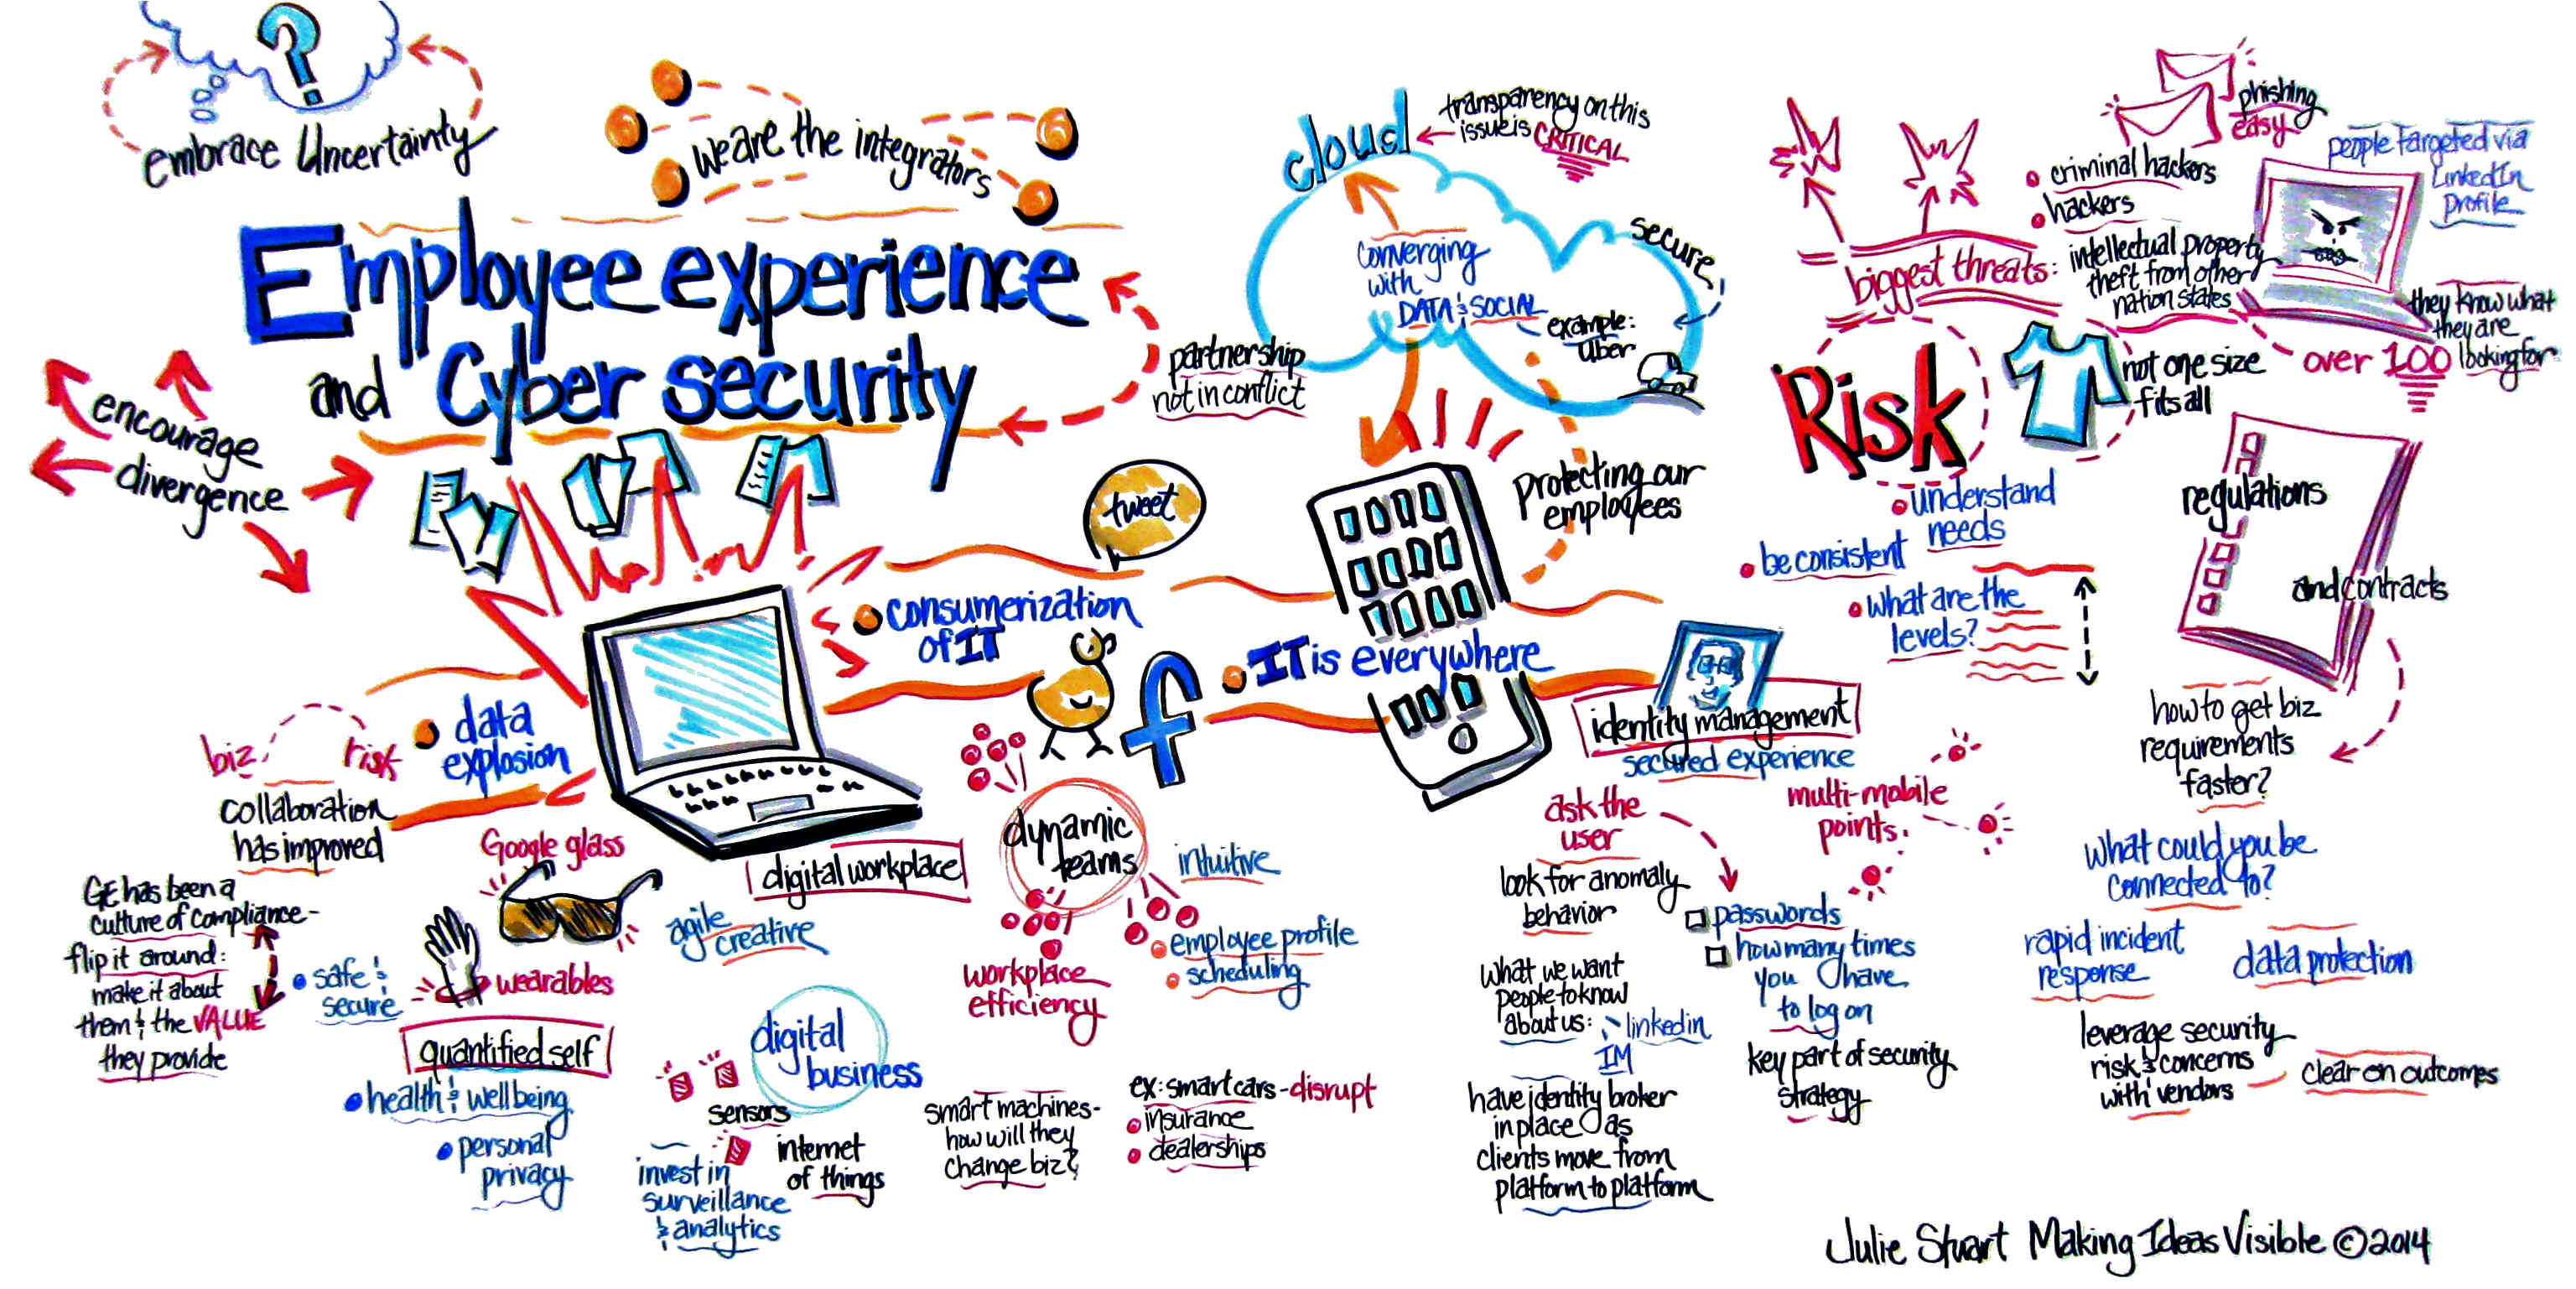 embrace Uncertainty
we are the integrators
Employee experience
and Cyber security
partnership
not in conflict
encourage
divergence
cloud
transparency on this
issue is CRITICAL
converging
with
DATA & SOCIAL
example:
uber
secure
Protecting our
employees
tweet
consumerization
of IT
IT is everywhere
f
data
explosion
biz
risk
collaboration
has improved
GE has been a
culture of compliance-
flip it around:
make it about
them & the VALUE
they provide
Google glass
wearables
safe &
secure
quantified self
health & well being
personal
privacy
digital workplace
agile
creative
dynamic
teams
intuitive
employee profile
scheduling
workplace
efficiency
digital
business
sensors
internet
of things
invest in
surveillance
& analytics
smart machines-
how will they
change biz?
ex: smart cars-disrupt
insurance
dealerships
identity management
secured experience
ask the
user
look for anomaly
behavior
what we want
people to know
about us:
linkedin
IM
have identity broker
in place as
clients move from
platform to platform
multi-mobile
points.
passwords
how many times
you have
to log on
key part of security
strategy
phishing
easy
criminal hackers
hackers
biggest threats:
intellectual property
theft from other
nation states
people targeted via
LinkedIn
Profile
they know what
they are
looking for
over 100
Risk
not one size
fits all
understand
needs
be consistent
what are the
levels?
regulations
and contracts
how to get biz
requirements
faster?
what could you be
connected to?
rapid incident
response
data protection
leverage security
risk & concerns
with vendors
clear on outcomes
Julie Stuart Making Ideas Visible © 2014